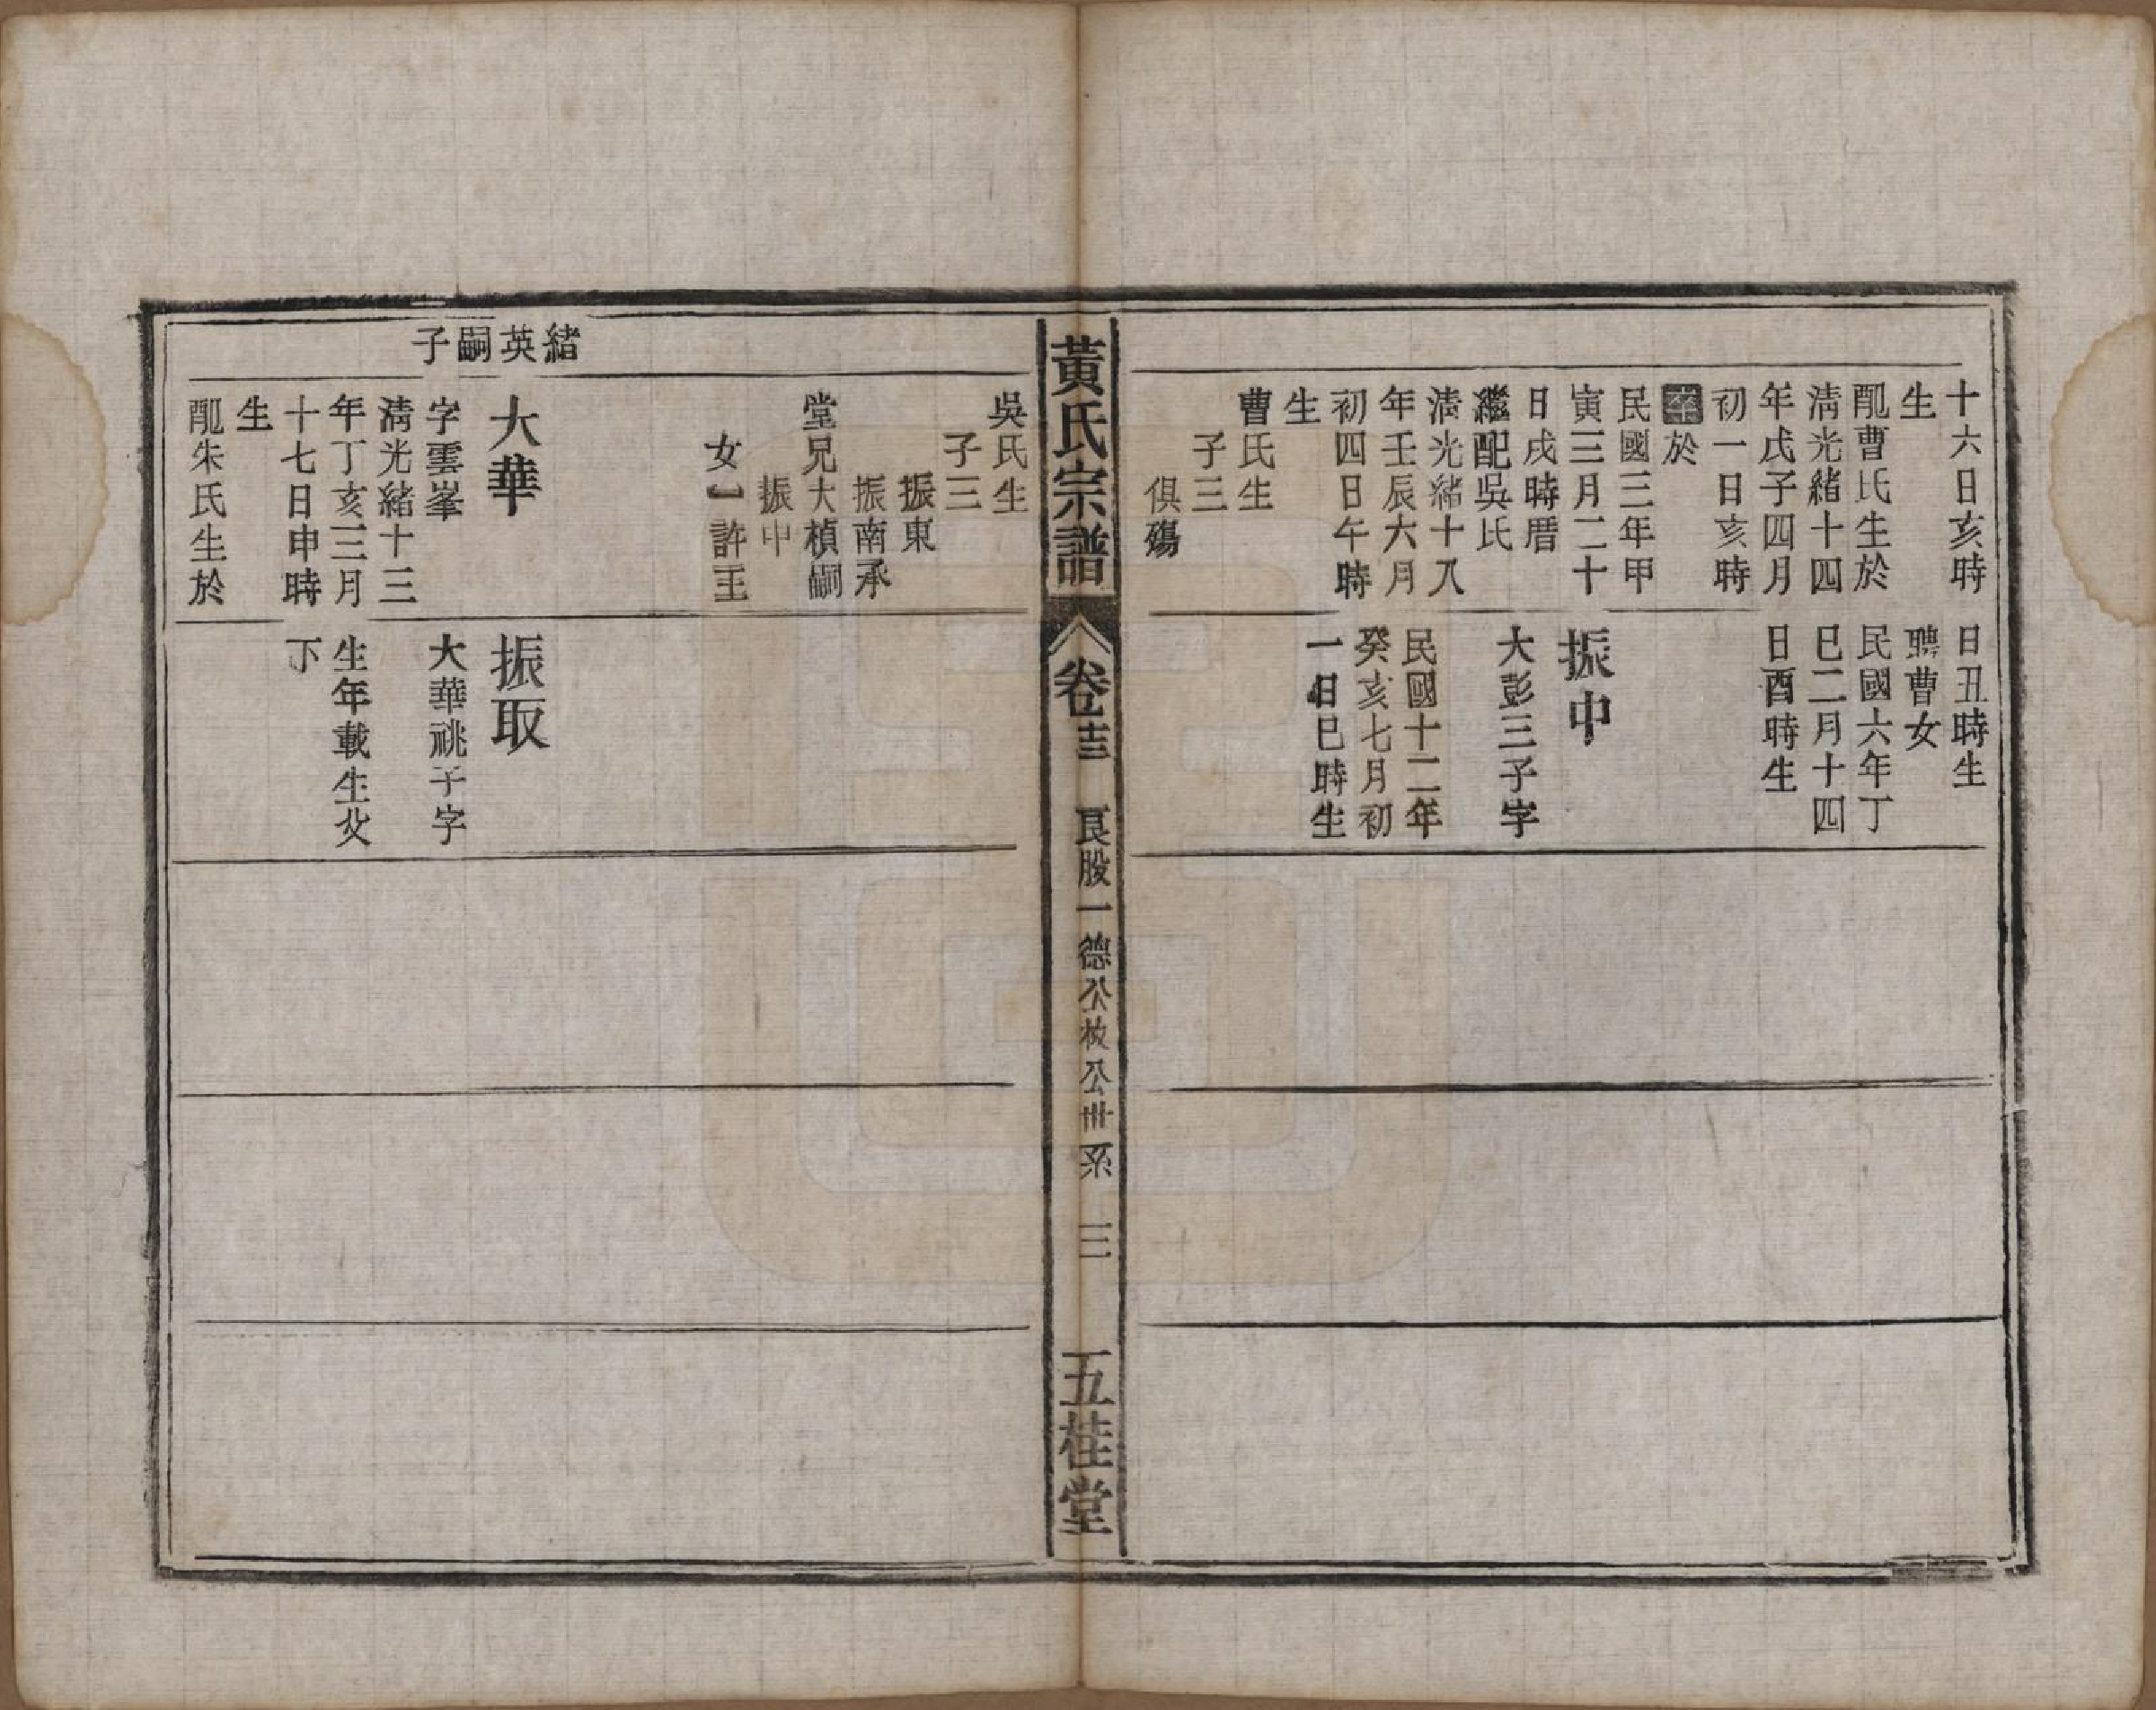 十六日亥時
生
配曹氏生於
清光緒十四
年戊子四月
初一日亥時
卒於
民國三年甲
寅三月二十
日戌時厝
繼配吳氏
清光緒十八
年壬辰六月
初四日午時
生
曹氏生
子三
俱殤
日丑時生
聘曹女
民國六年丁
巳二月十四
日酉時生
振中
大彭三子字
民國十二年
癸亥七月初
一日巳時生
黃氏宗譜
卷十三
良股一德公枝公卅系
三
五桂堂
吳氏生
子三
振東
振南承
堂兄大楨嗣
振中
女一許王
緒英嗣子
大華
字雲峯
清光緒十三
年丁亥三月
十七日申時
生
配朱氏生於
振取
大華祧子字
生年載生父
下